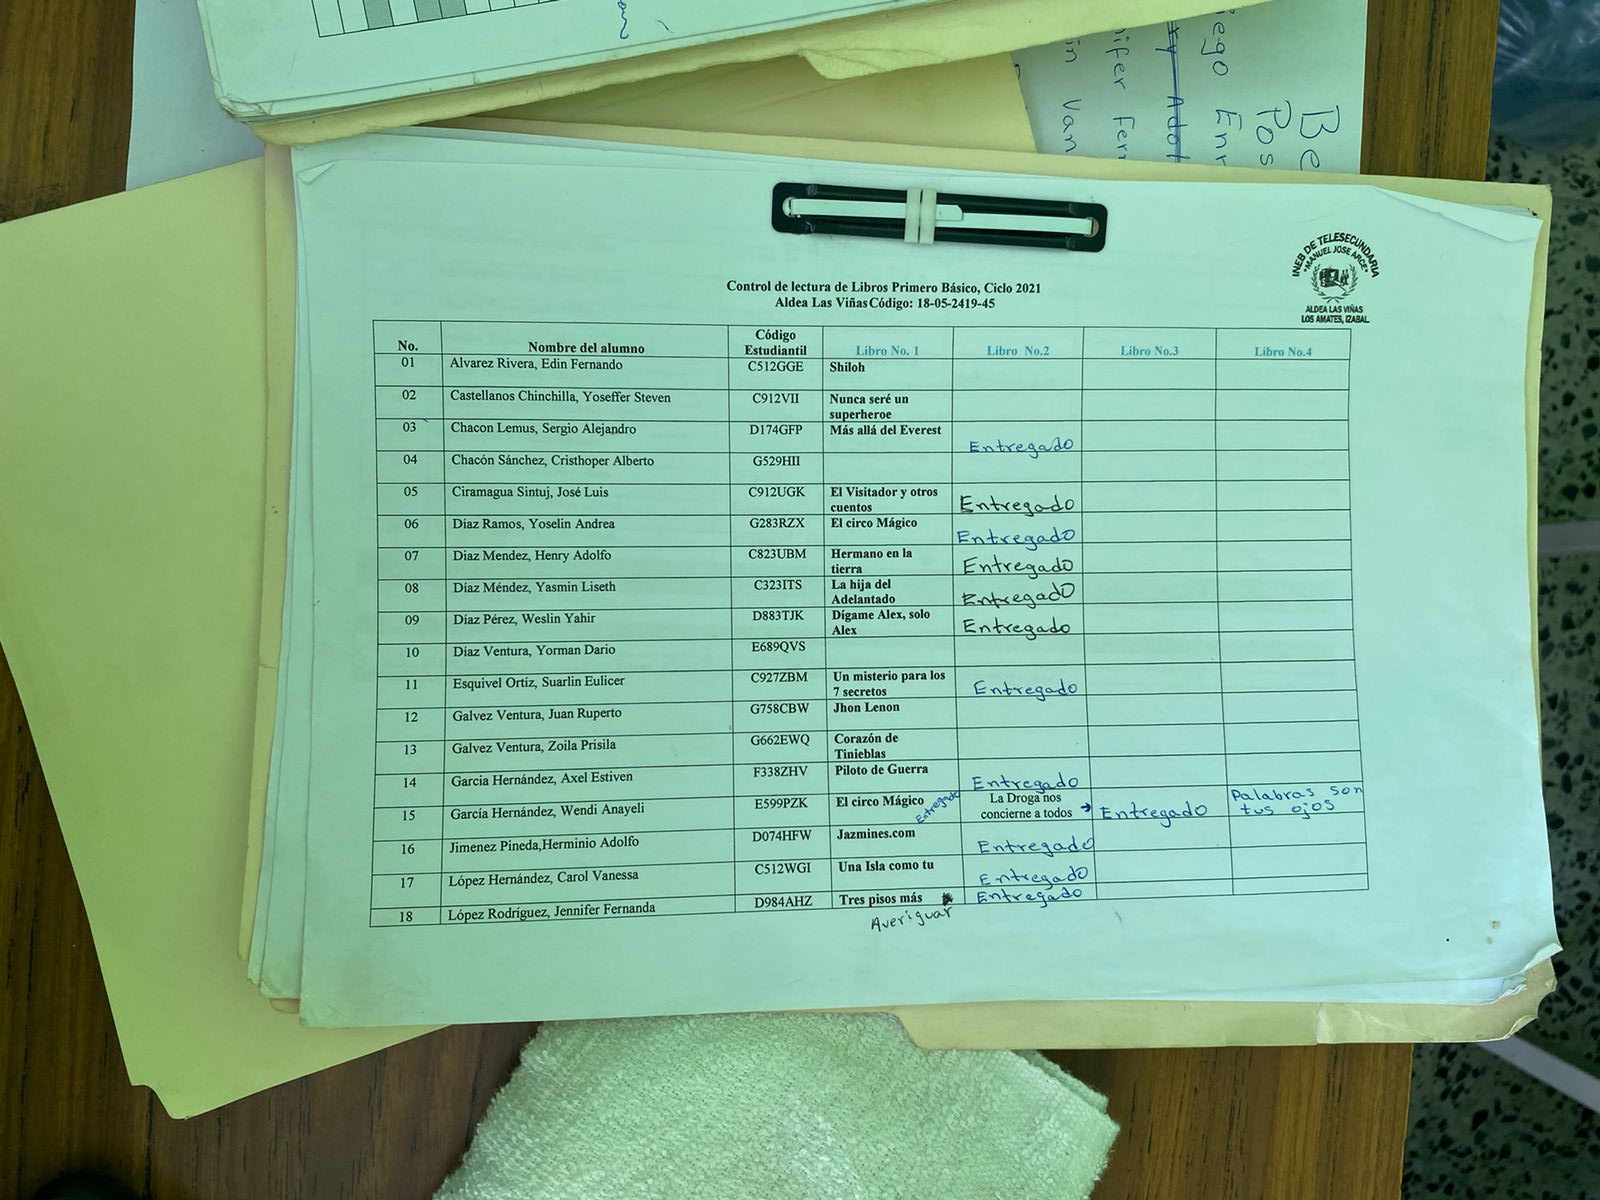 Be
Pos
iego Enr
nifer Fern
in Van
INEB DE TELESECUNDARIA
"MANUEL JOSE ARCE"
ALDEA LAS VIÑAS
LOS AMATES, IZABAL
Control de lectura de Libros Primero Básico, Ciclo 2021
Aldea Las Viñas Código: 18-05-2419-45
No. Nombre del alumno Código Estudiantil Libro No. 1 Libro No.2 Libro No.3 Libro No.4
01 Alvarez Rivera, Edin Fernando C512GGE Shiloh
02 Castellanos Chinchilla, Yoseffer Steven C912VII Nunca seré un superheroe
03 Chacon Lemus, Sergio Alejandro D174GFP Más allá del Everest Entregado
04 Chacón Sánchez, Cristhoper Alberto G529HII
05 Ciramagua Sintuj, José Luis C912UGK El Visitador y otros cuentos Entregado
06 Díaz Ramos, Yoselin Andrea G283RZX El circo Mágico Entregado
07 Diaz Mendez, Henry Adolfo C823UBM Hermano en la tierra Entregado
08 Díaz Méndez, Yasmin Liseth C323ITS La hija del Adelantado Entregado
09 Díaz Pérez, Weslin Yahir D883TJK Dígame Alex, solo Alex Entregado
10 Díaz Ventura, Yorman Dario E689QVS
11 Esquivel Ortíz, Suarlin Eulicer C927ZBM Un misterio para los 7 secretos Entregado
12 Galvez Ventura, Juan Ruperto G758CBW Jhon Lenon
13 Galvez Ventura, Zoila Prisila G662EWQ Corazón de Tinieblas
14 Garcia Hernández, Axel Estiven F338ZHV Piloto de Guerra Entregado
15 García Hernández, Wendi Anayeli E599PZK El circo Mágico Entregado La Droga nos concierne a todos → Entregado Palabras son tus ojos
16 Jimenez Pineda,Herminio Adolfo D074HFW Jazmines.com Entregado
17 López Hernández, Carol Vanessa C512WGI Una Isla como tu Entregado
18 López Rodríguez, Jennifer Fernanda D984AHZ Tres pisos más Entregado
Averiguar